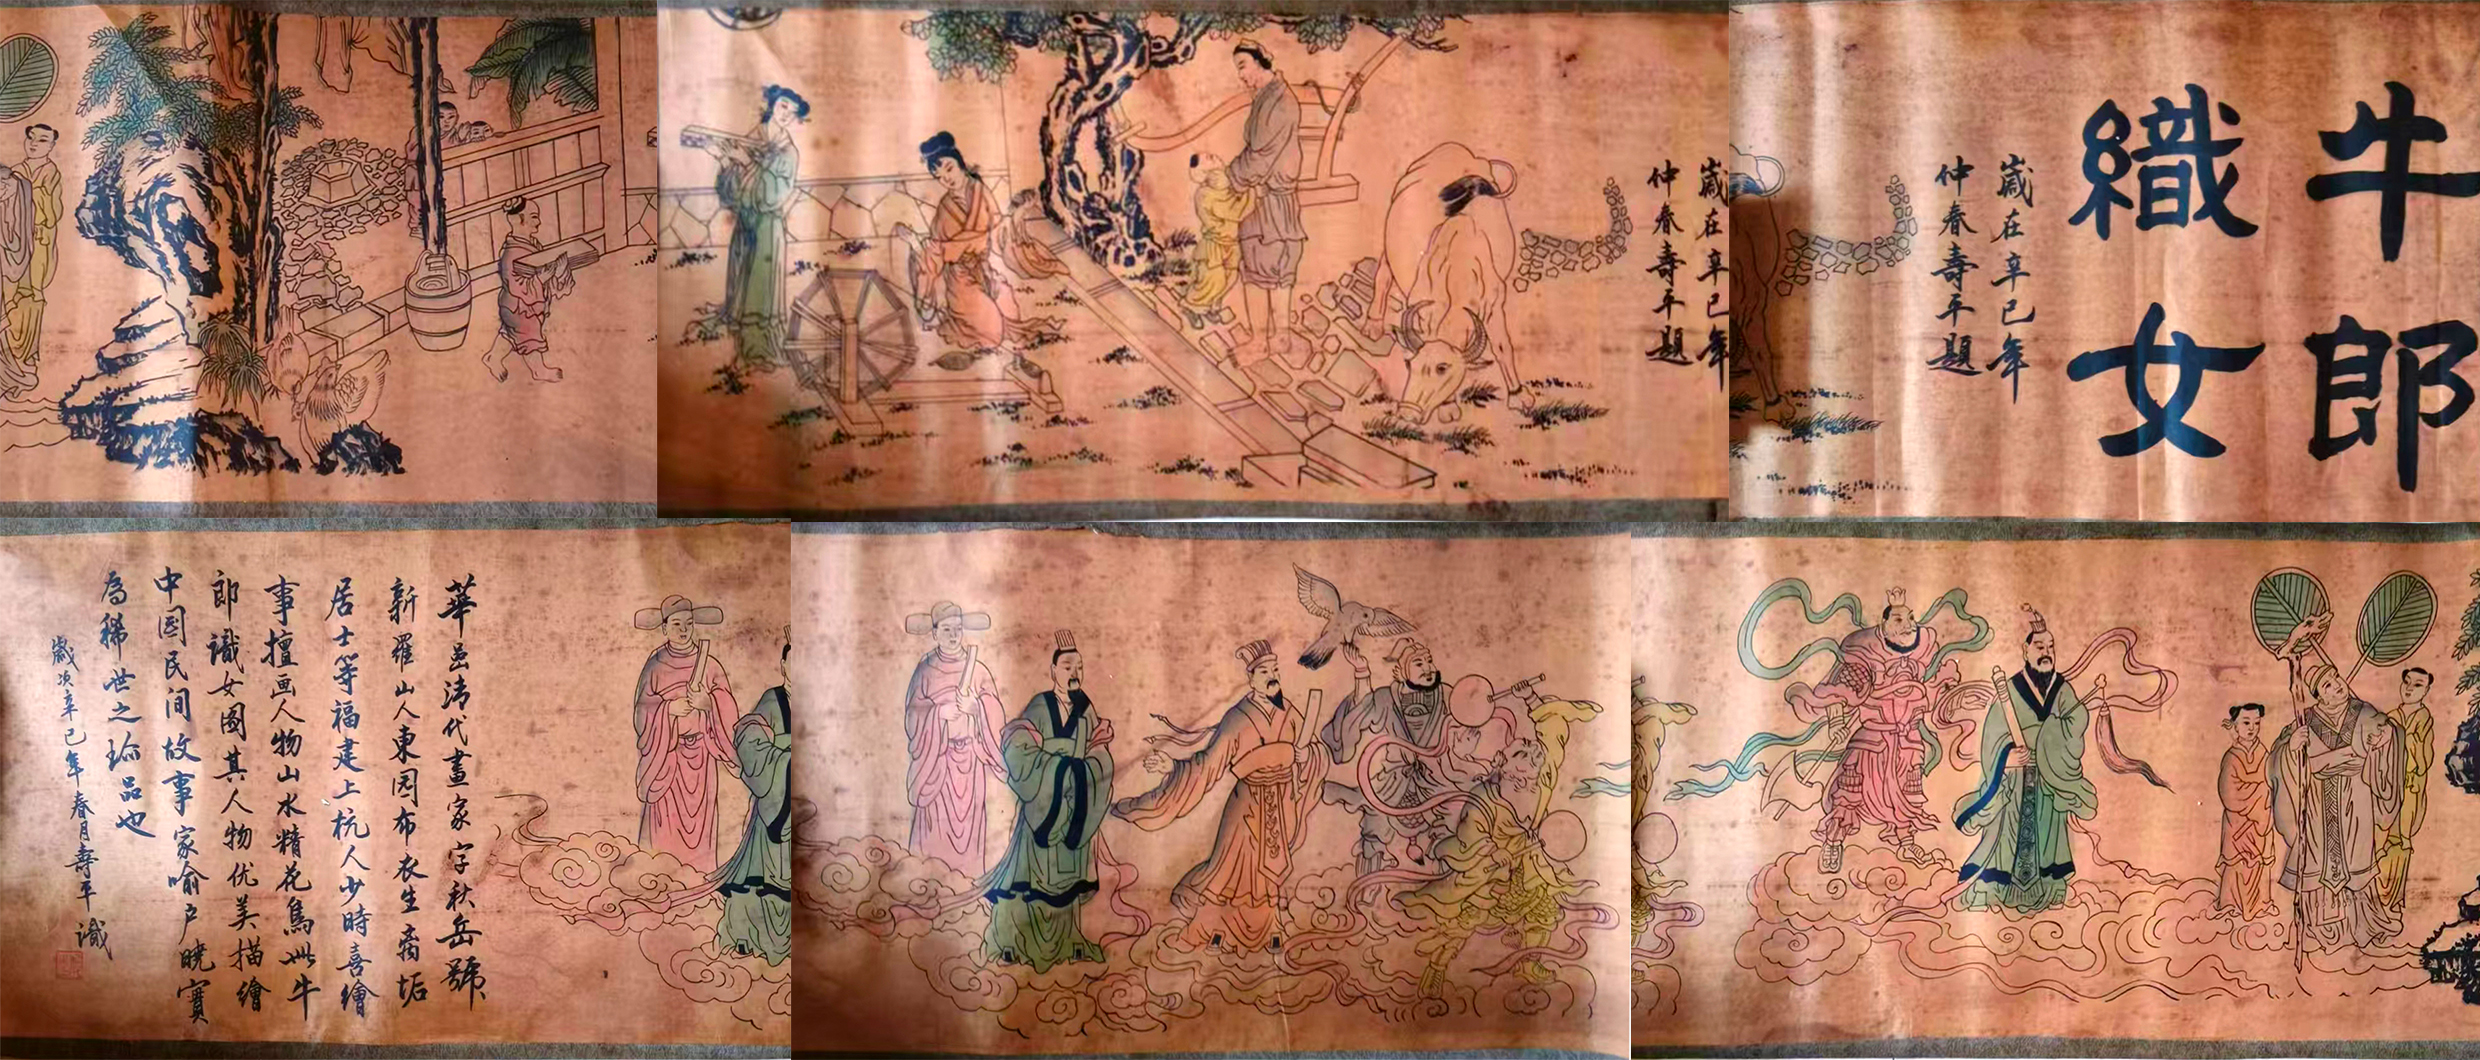 牛郎
織女
歲在辛巳年
仲春壽平題
歲在辛巳年
仲春壽平題
華嵒清代畫家字秋岳號
新羅山人東园布衣生裔垢
居士等福建上杭人少時喜繪
事擅画人物山水精花鳥此牛
郎識女圖其人物优美描繪
中国民间故事家喻户曉實
為稀世之珎品也
歲次辛巳年春月壽平識